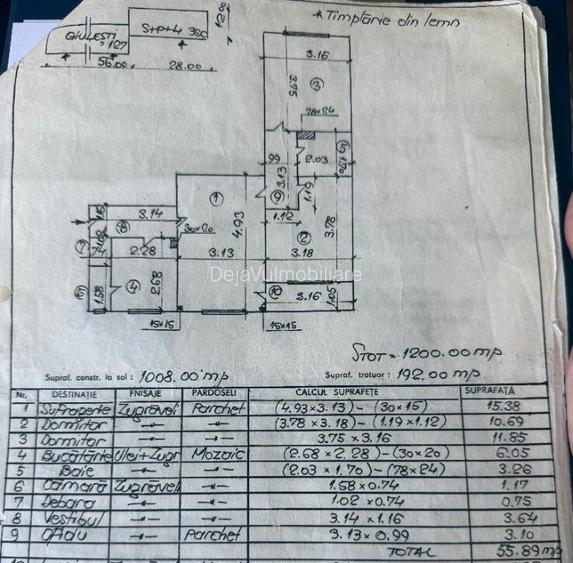 * Timplărie din lemn
GIULEȘTI, 127
S+P+4 3SC
12.00
56.00
28.00
3.16
3.75
3
78x24
.99
2.03
1.70
3.13
9
1.19
1.12
3.78
2
3.18
1
4.93
3.13
3.14
8
30x20
7
.74
2.28
4
2.68
6
1.58
10
3.16
1.05
15x15
15x15
DejaVuImobiliare
STOT = 1200.00 mp
Supraf. constr. la sol : 1008.00 mp
Supraf. trotuar : 192.00 mp
Nr. DESTINAȚIE FNISAJE PARDOSELI CALCUL SUPRAFEȚE SUPRAFAȚĂ
1 Sufragerie Zugrăveli Parchet (4.93x3.13) - (30x15) 15.38
2 Dormitor -"- -"- (3.78x3.18) - (1.19x1.12) 10.69
3 Dormitor -"- -"- 3.75x3.16 11.85
4 Bucătărie Ulei+Zugr Mozaic (2.68x2.28) - (30x20) 6.05
5 Baie -"- -"- (2.03x1.70) - (78x24) 3.26
6 Cămară Zugrăvel -"- 1.58x0.74 1.17
7 Debara -"- -"- 1.02x0.74 0.75
8 Vestibul -"- -"- 3.14x1.16 3.64
9 Oficiu -"- Parchet 3.13x0.99 3.10
TOTAL 55.89 mp